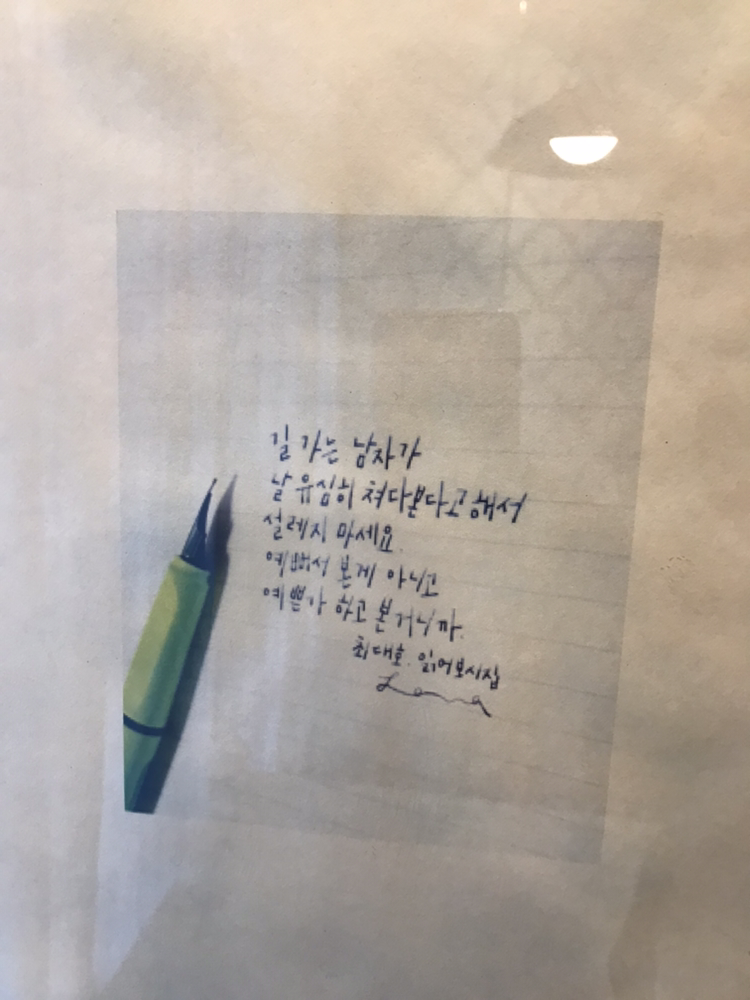 길 가는 남자가
날 유심히 쳐다본다고 해서
설레지 마세요.
예뻐서 본게 아니고
예쁜가 하고 본거니까.
최대호. 읽어보시집
Lana